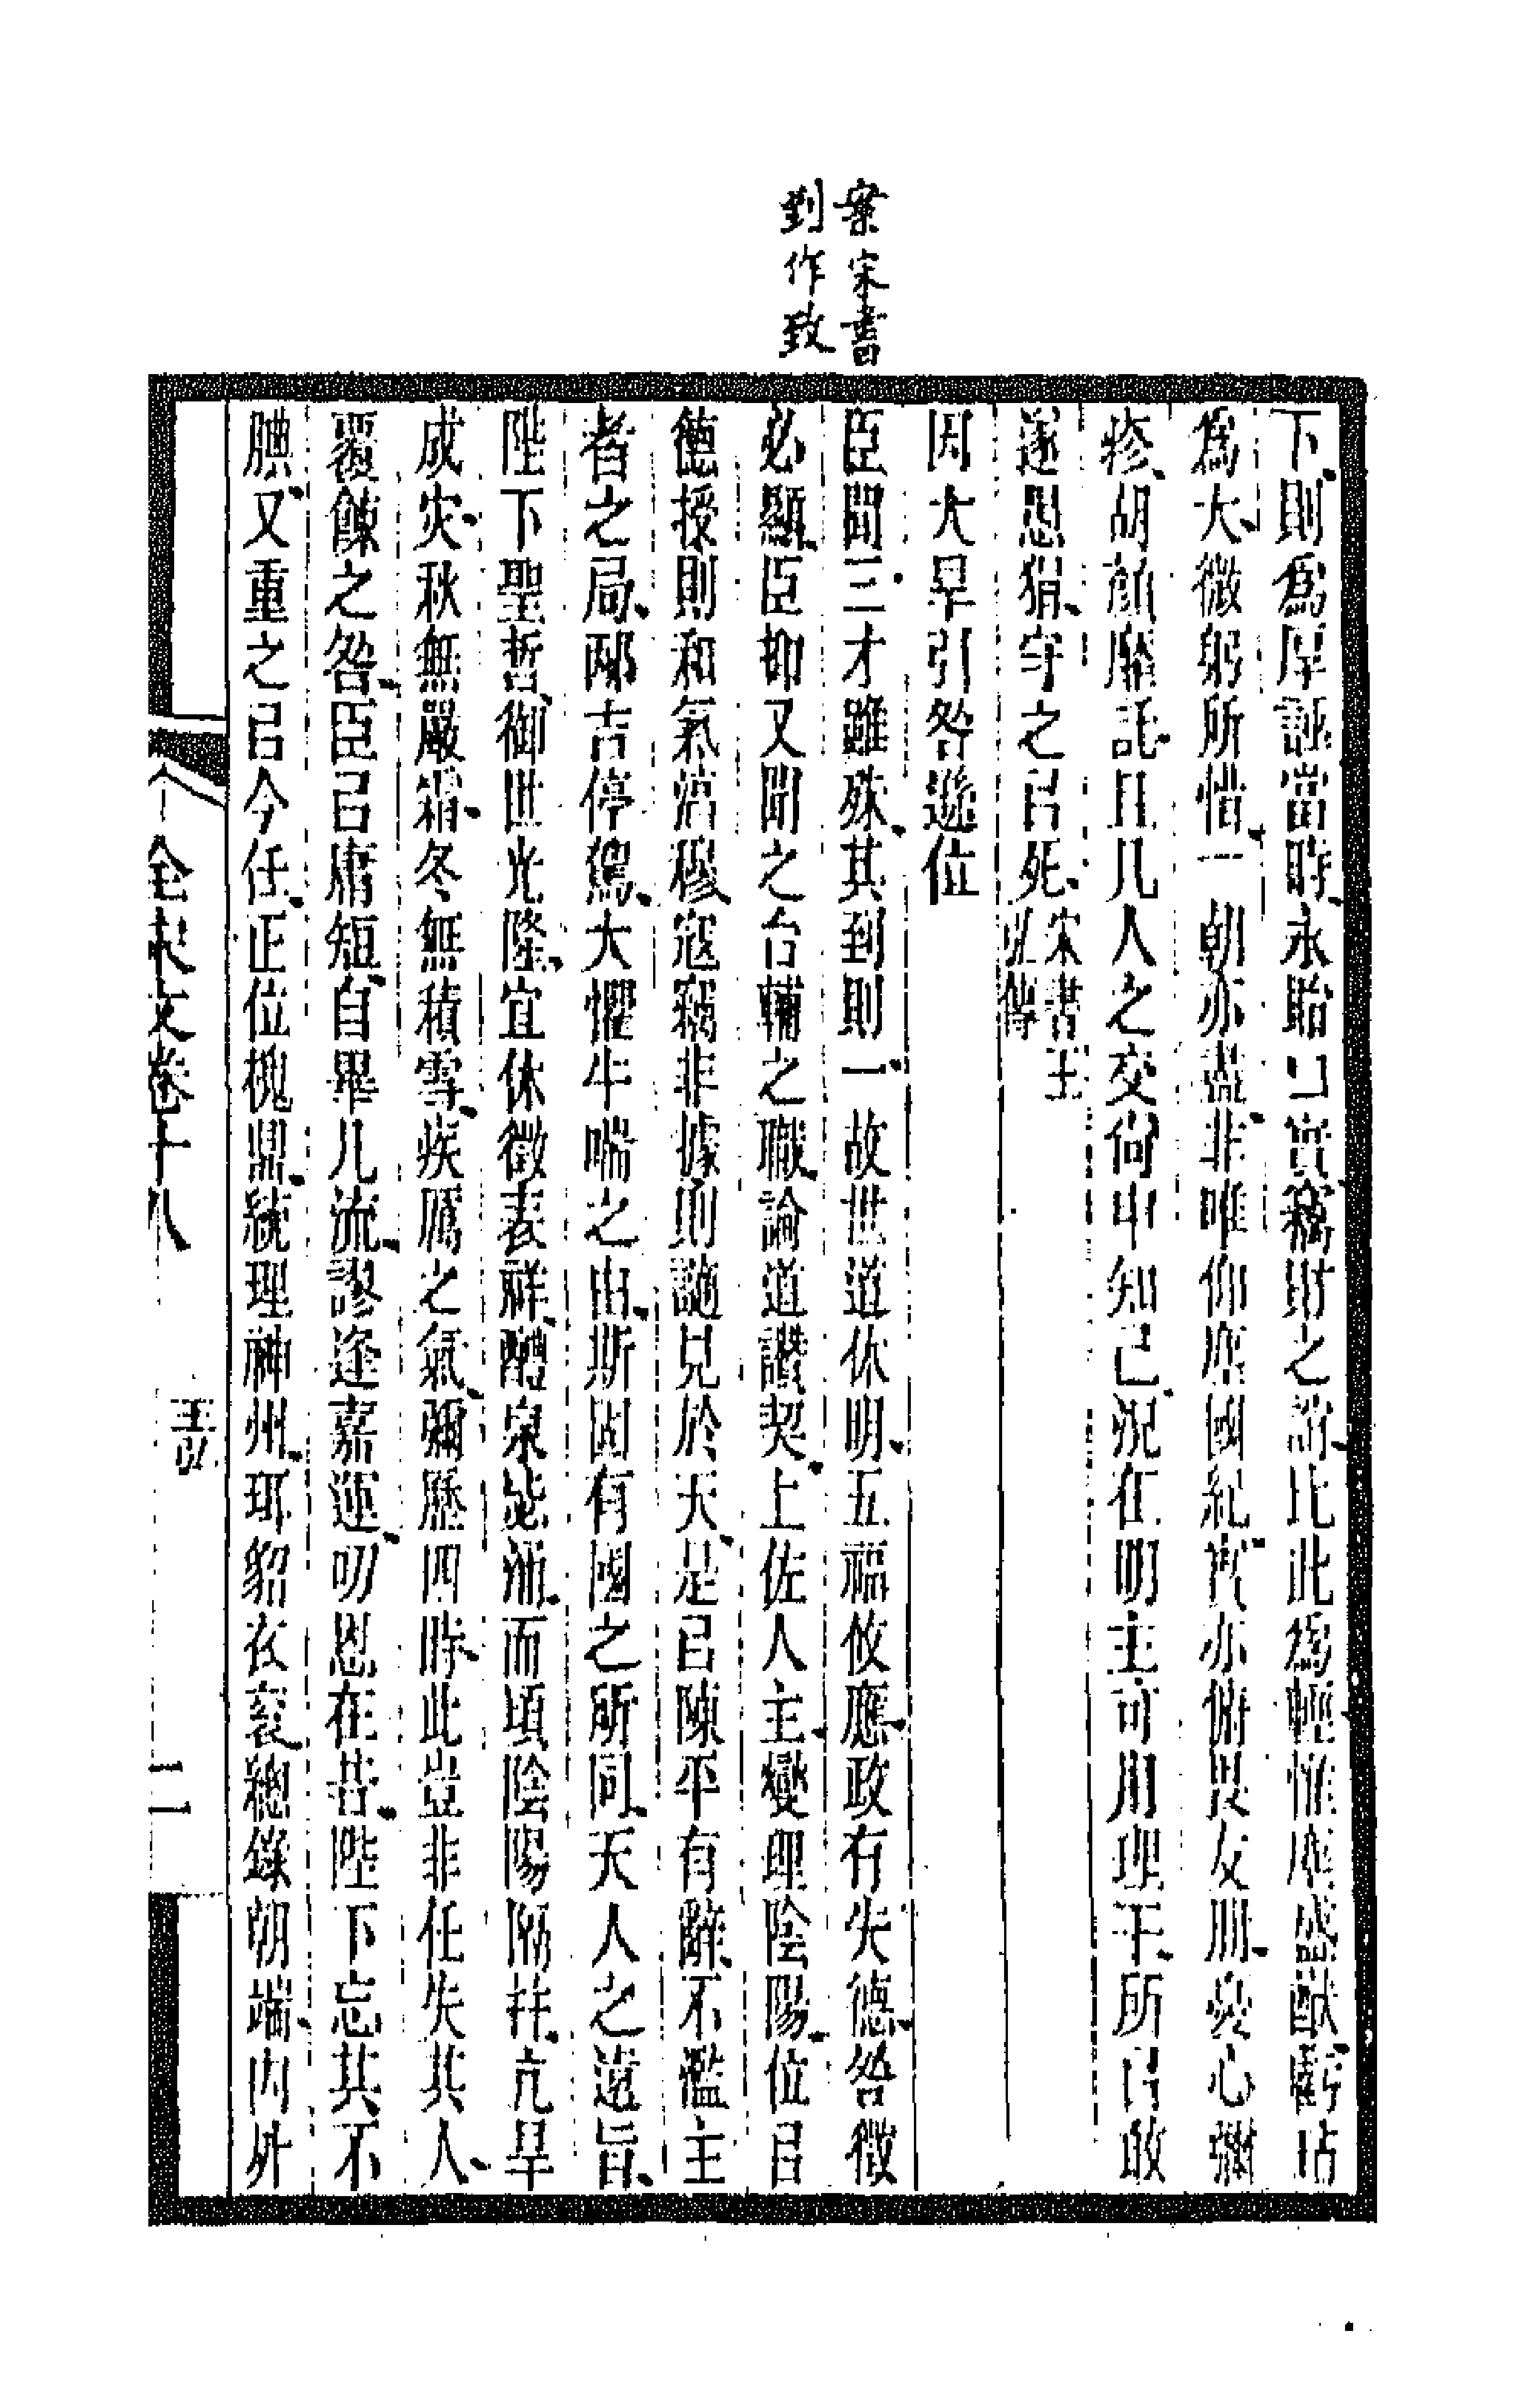 案宋書
到作致
下則爲厚誣當時永貽口實竊財之誚比此爲輕惟塵盛猷虧玷
爲大微躬所惜一朝亦盡非唯仰塵國紀實亦俯畏友朋憂心彌
疹胡顏靡託且凡人之交尚申知己況在明主可用理干所㠯敢
遂愚狷守之㠯死宋書王
弘傳
因大旱引咎遜位
臣聞三才雖殊其到則一故世道休明五福攸應政有失德咎徵
必顯臣抑又聞之台輔之職論道讚契上佐人主燮理陰陽位㠯
德授則和氣淳穆寇竊非據則謫見於天是㠯陳平有辭不濫主
者之局邴吉停駕大懼牛喘之由斯固有國之所同天人之遠旨
陛下聖哲御世光隆宜休徵表祥醴泉毖涌而頃陰陽隔并亢旱
成災秋無嚴霜冬無積雪疾厲之氣彌歷四時此豈非任失其人
覆餗之咎臣㠯庸短自畢凡流謬逢嘉運叨恩在昔陛下忘其不
腆又重之㠯今任正位槐鼎統理神州珥貂衣袞總錄朝端內外
全宋文卷十八
王弘
二